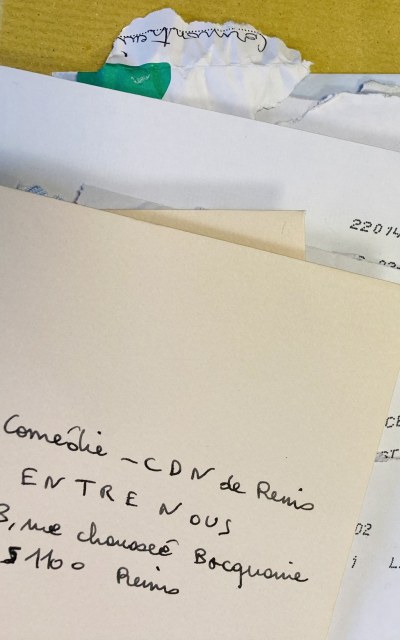 22014
Comédie - CDN de Reims
ENTRE NOUS
3, rue chaussée Bocquaine
51100 Reims
02